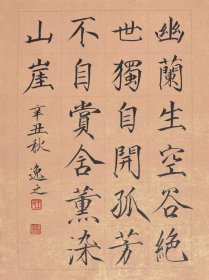 幽蘭生空谷絶
世獨自開孤芳
不自賞含薰染
山崖
辛丑秋 逸之